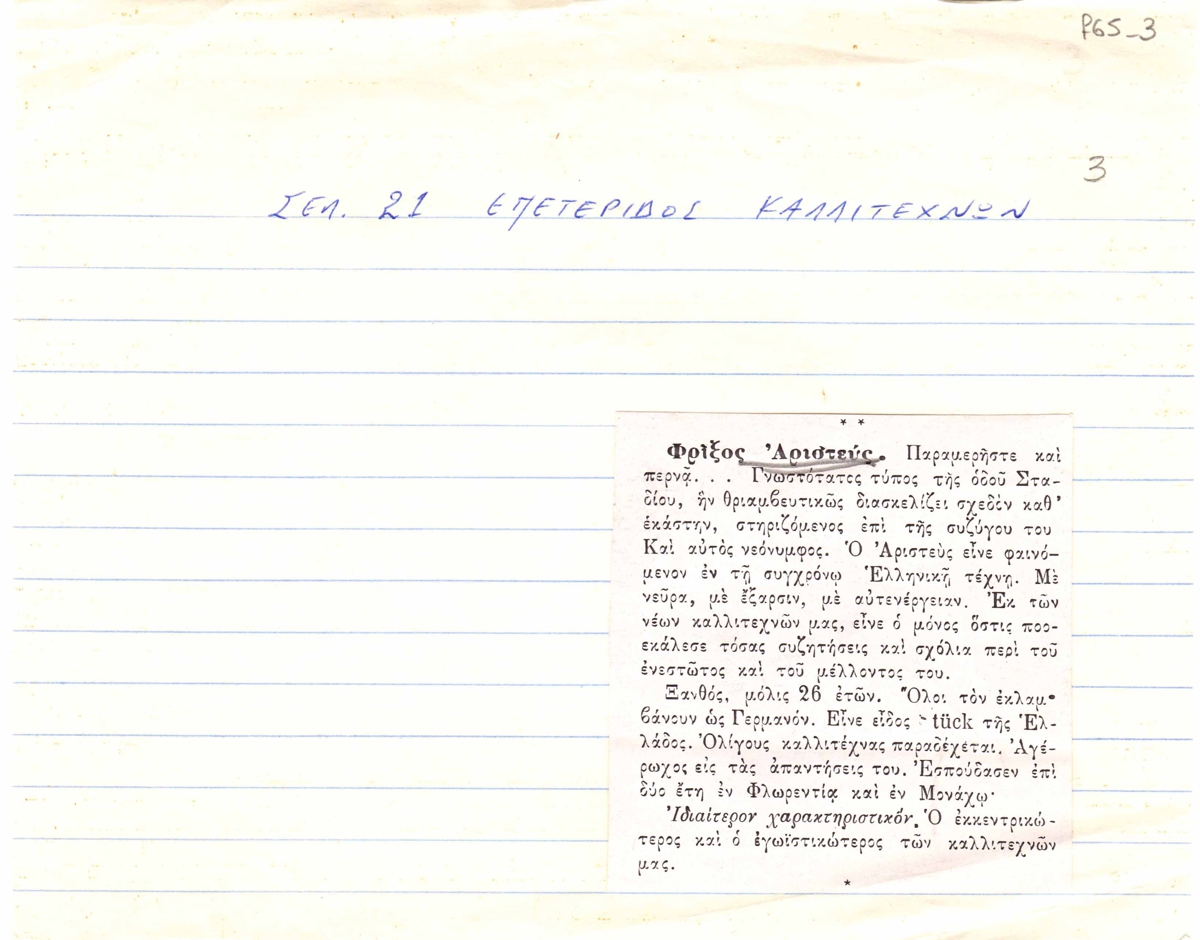 P65_3
3
ΣΕΛ. 21 ΕΠΕΤΕΡΙΔΟΣ ΚΑΛΛΙΤΕΧΝΩΝ
* *
Φρῖξος Ἀριστεύς. Παραμερῆστε καὶ
περνᾷ. . . Γνωστότατος τύπος τῆς ὁδοῦ Στα-
δίου, ἣν θριαμβευτικῶς διασκελίζει σχεδὸν καθ’
ἑκάστην, στηριζόμενος ἐπὶ τῆς συζύγου του
Καὶ αὐτὸς νεόνυμφος. Ὁ Ἀριστεὺς εἶνε φαινό-
μενον ἐν τῇ συγχρόνῳ Ἑλληνικῇ τέχνῃ. Μὲ
νεῦρα, μὲ ἔξαρσιν, μὲ αὐτενέργειαν. Ἐκ τῶν
νέων καλλιτεχνῶν μας, εἶνε ὁ μόνος ὅστις προ-
εκάλεσε τόσας συζητήσεις καὶ σχόλια περὶ τοῦ
ἐνεστῶτος καὶ τοῦ μέλλοντος του.
Ξανθός, μόλις 26 ἐτῶν. Ὅλοι τὸν ἐκλαμ-
βάνουν ὡς Γερμανόν. Εἶνε εἶδος tück τῆς Ἑλ-
λάδος. Ὀλίγους καλλιτέχνας παραδέχεται. Ἀγέ-
ρωχος εἰς τὰς ἀπαντήσεις του. Ἐσπούδασεν ἐπὶ
δύο ἔτη ἐν Φλωρεντίᾳ καὶ ἐν Μονάχῳ·
Ἰδιαίτερον χαρακτηριστικόν. Ὁ ἐκκεντρικώ-
τερος καὶ ὁ ἐγωϊστικώτερος τῶν καλλιτεχνῶν
μας.
*